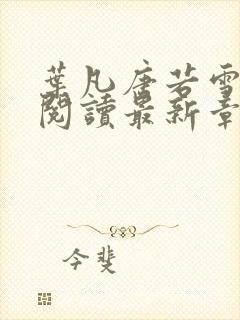 葉凡唐若雪
閱讀最新章
今斐